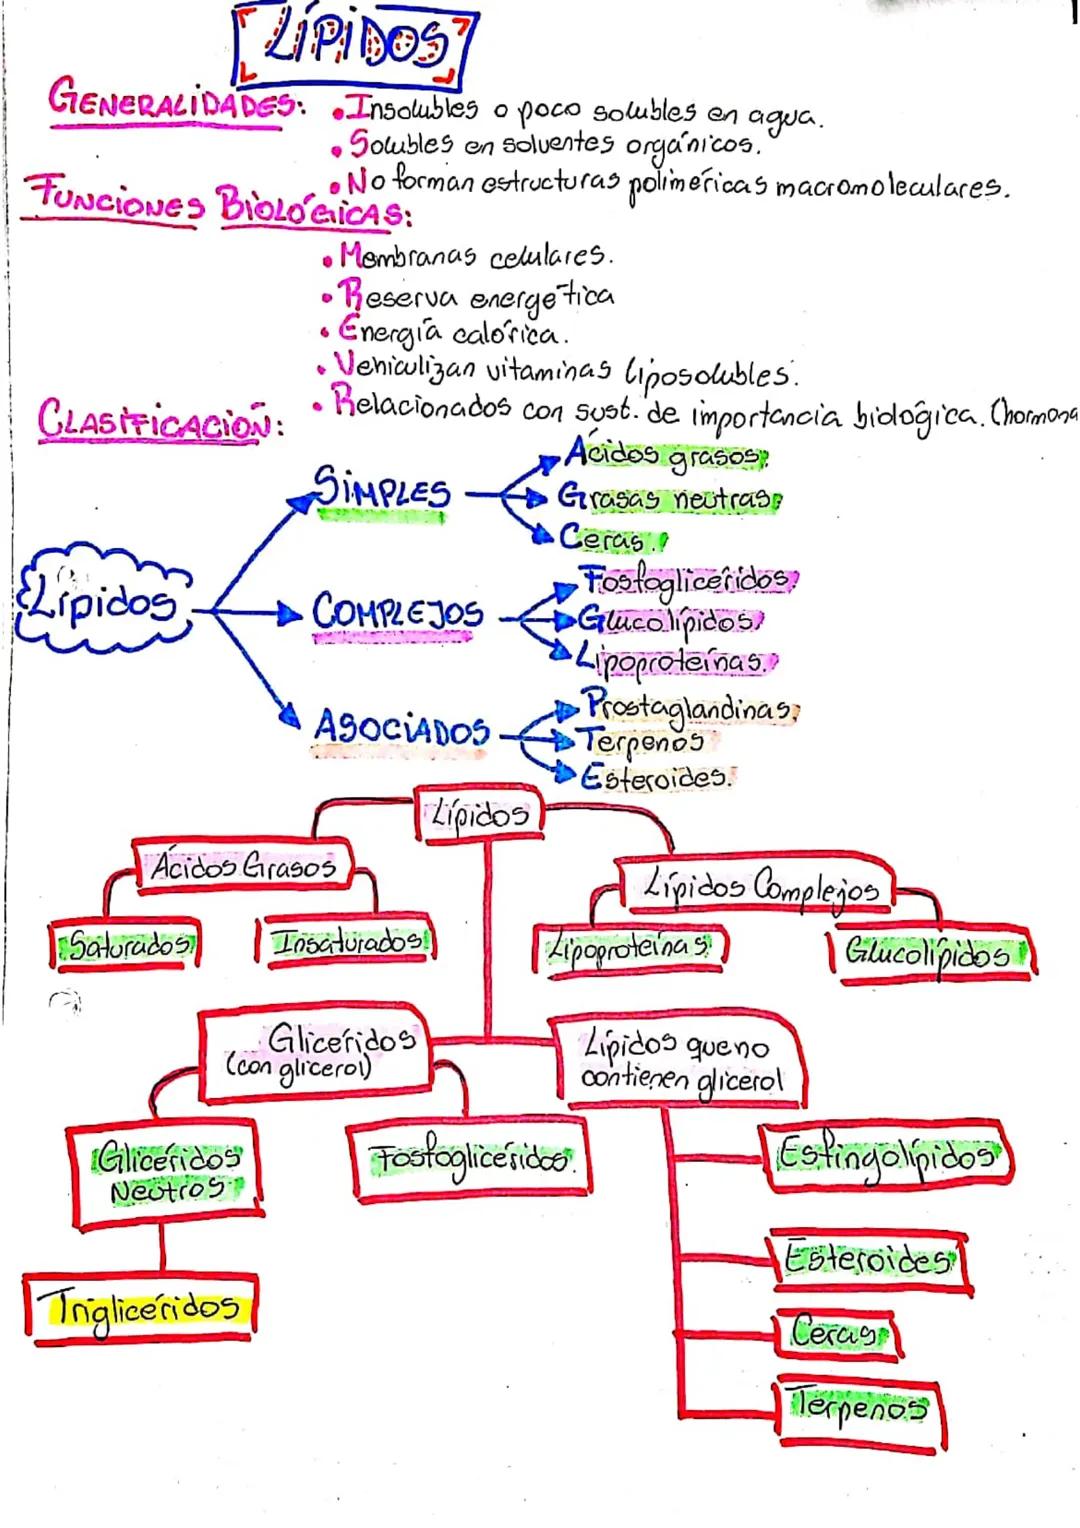 LÍPIDOS
GENERALIDADES: • Insolubles o poco solubles en agua.
• Solubles en solventes orgánicos.
• No forman estructuras poliméricas macromoleculares.
FUNCIONES BIOLÓGICAS:
• Membranas celulares.
• Reserva energética
• Energía calórica.
• Vehiculizan vitaminas liposolubles.
• Relacionados con sust. de importancia biológica. (hormona
CLASIFICACIÓN:
Lípidos
SIMPLES
Ácidos grasos
Grasas neutras
Ceras.
COMPLEJOS
Fosfoglicéridos
Glucolípidos
Lipoproteínas.
ASOCIADOS
Prostaglandinas
Terpenos
Esteroides.
Lípidos
Ácidos Grasos
Lípidos Complejos
Saturados
Insaturados
Lipoproteínas
Glucolípidos
Glicéridos
(con glicerol)
Lípidos que no
contienen glicerol
Glicéridos
Neutros
Fosfoglicéridos.
Esfingolípidos
Esteroides
Triglicéridos
Ceras
Terpenos